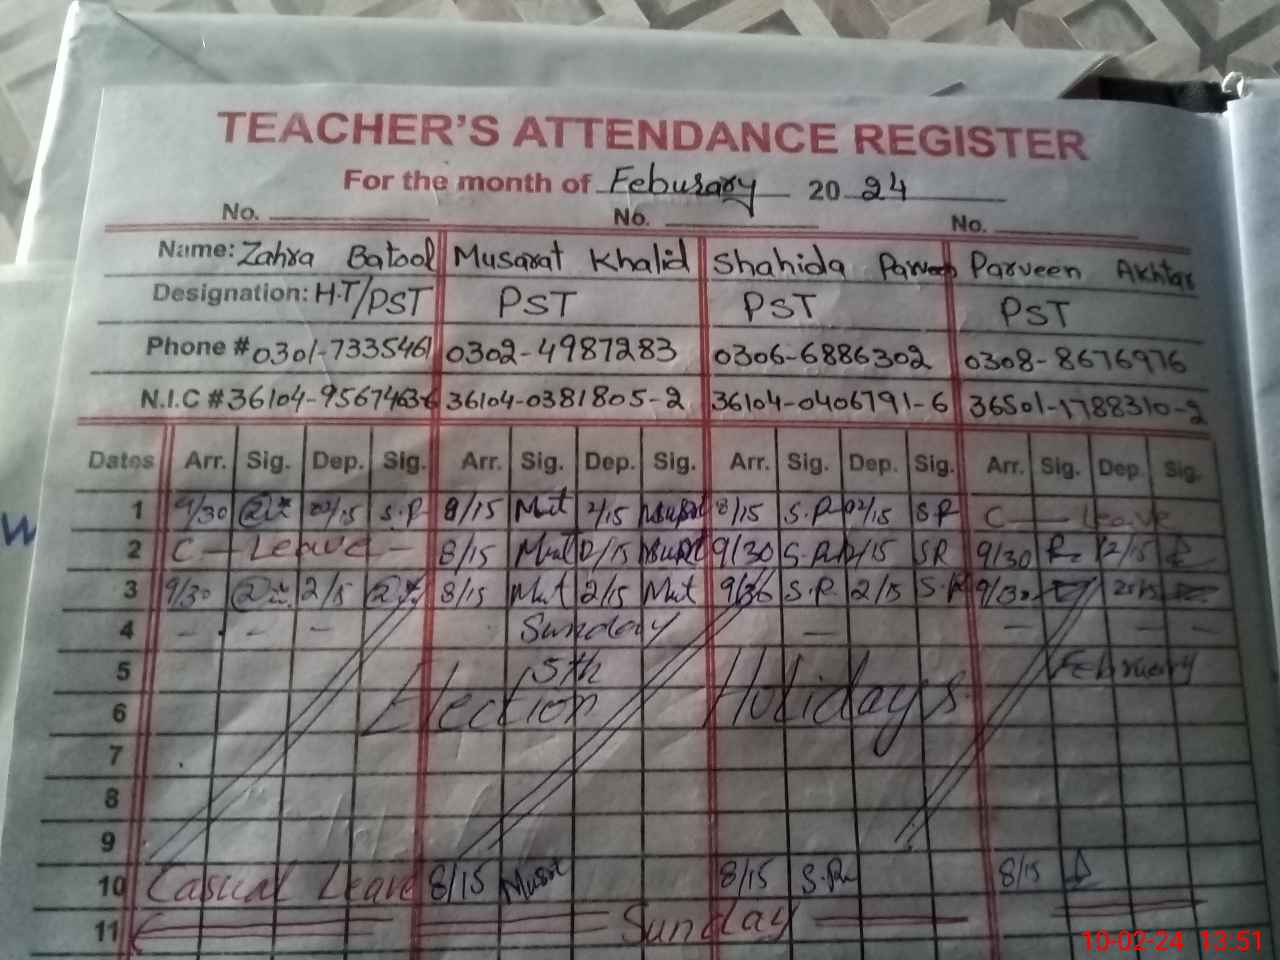 TEACHER'S ATTENDANCE REGISTER
For the month of Feburay 2024
No. No. No.
Name: Zahra Batool Musarat Khalid Shahida Parveen Parveen Akhtar
Designation: H.T/PST PST PST PST
Phone # 0301-7335461 0302-4987283 0306-6886302 0308-8676976
N.I.C # 36104-9567463-6 36104-0381805-2 36104-0406791-6 36501-1788310-2
Dates Arr. Sig. Dep. Sig. Arr. Sig. Dep. Sig. Arr. Sig. Dep. Sig. Arr. Sig. Dep. Sig.
1 9/30 02/15 S.P 8/15 Mut 2/15 8/15 S.P 02/15 SP C — Leave
2 C — Leave — 8/15 2/15 9/30 S.P 2/15 SR 9/30 2/15
3 9/30 2/15 8/15 Mut 2/15 Mut 9/30 S.P. 2/15 S.P 9/30
4 — — — Sunday — — — —
5 5th February
6 Election Holidays
7
8
9
10 Casual Leave 8/15 Musrt 8/15 S.P 8/15
11 Sunday
10-02-24 13:51